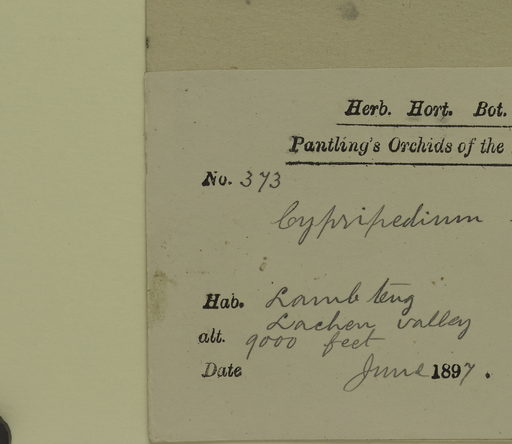 Herb. Hort. Bot.
Pantling's Orchids of the
No. 373
Cypripedium
Hab. Lamb teng
Lachen valley
alt. 9000 feet
Date June 1897.